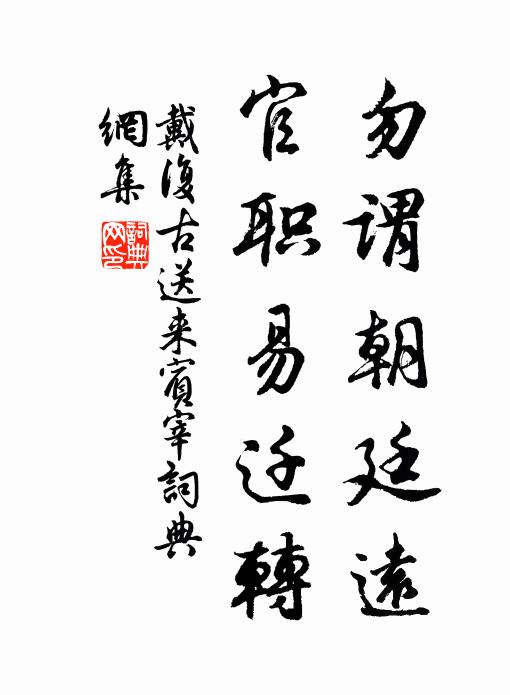 勿谓朝廷遠
官职易迁轉
戴復古送来賓宰詞典
網集
詞典
网印